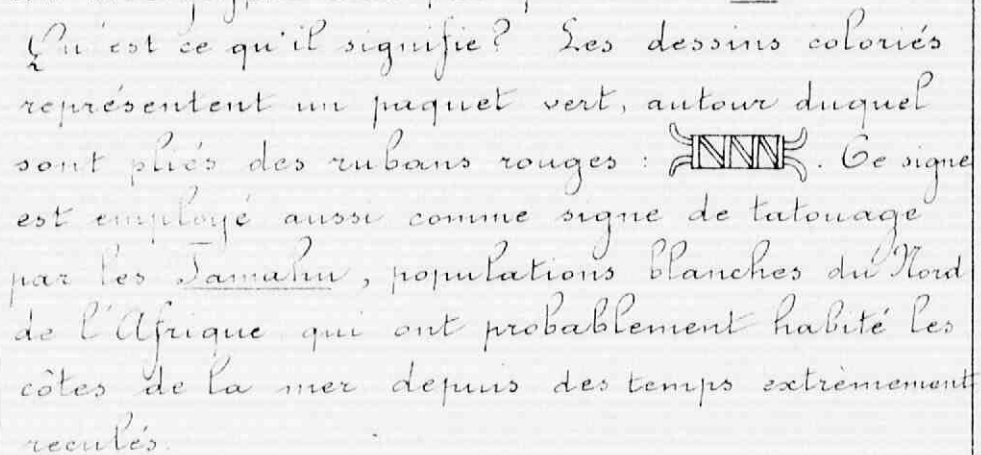 Qu'est ce qu'il signifie? Les dessins coloriés
représentent un paquet vert, autour duquel
sont pliés des rubans rouges : . Ce signe
est employé aussi comme signe de tatouage
par les Tamahu, populations blanches du Nord
de l'Afrique qui ont probablement habité les
côtes de la mer depuis des temps extrèmement
reculés.